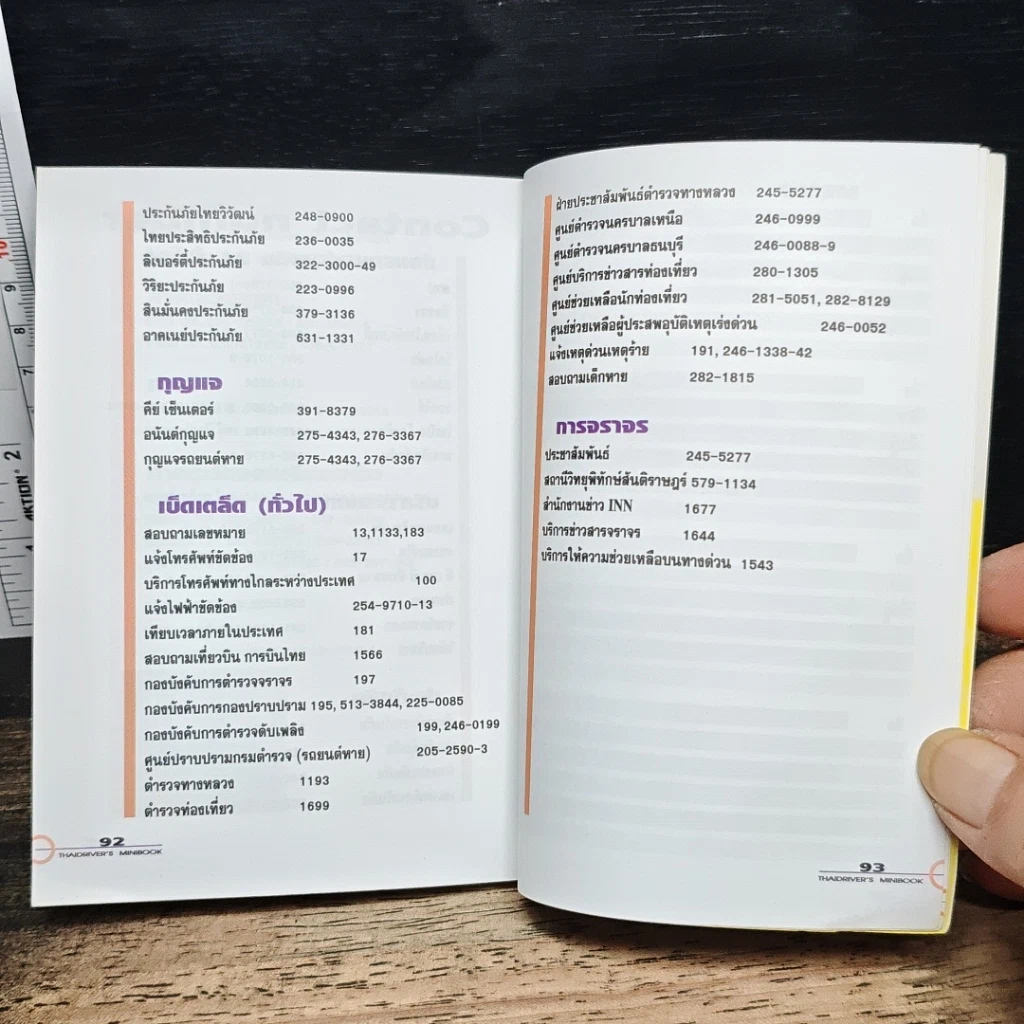 ประกันภัยไทยวิวัฒน์ 248-0900
ไทยประสิทธิประกันภัย 236-0035
ลิเบอร์ตี้ประกันภัย 322-3000-49
วิริยะประกันภัย 223-0996
สินมั่นคงประกันภัย 379-3136
อาคเนย์ประกันภัย 631-1331
กุญแจ
คีย์ เซ็นเตอร์ 391-8379
อนันต์กุญแจ 275-4343, 276-3367
กุญแจรถยนต์หาย 275-4343, 276-3367
เบ็ดเตล็ด (ทั่วไป)
สอบถามเลขหมาย 13,1133,183
แจ้งโทรศัพท์ขัดข้อง 17
บริการโทรศัพท์ทางไกลระหว่างประเทศ 100
แจ้งไฟฟ้าขัดข้อง 254-9710-13
เทียบเวลาภายในประเทศ 181
สอบถามเที่ยวบิน การบินไทย 1566
กองบังคับการตำรวจจราจร 197
กองบังคับการกองปราบปราม 195, 513-3844, 225-0085
กองบังคับการตำรวจดับเพลิง 199, 246-0199
ศูนย์ปราบปรามกรมตำรวจ (รถยนต์หาย) 205-2590-3
ตำรวจทางหลวง 1193
ตำรวจท่องเที่ยว 1699
92
THAIDRIVER'S MINIBOOK
ฝ่ายประชาสัมพันธ์ตำรวจทางหลวง 245-5277
ศูนย์ตำรวจนครบาลเหนือ 246-0999
ศูนย์ตำรวจนครบาลธนบุรี 246-0088-9
ศูนย์บริการข่าวสารท่องเที่ยว 280-1305
ศูนย์ช่วยเหลือนักท่องเที่ยว 281-5051, 282-8129
ศูนย์ช่วยเหลือผู้ประสพอุบัติเหตุเร่งด่วน 246-0052
แจ้งเหตุด่วนเหตุร้าย 191, 246-1338-42
สอบถามเด็กหาย 282-1815
การจราจร
ประชาสัมพันธ์ 245-5277
สถานีวิทยุพิทักษ์สันติราษฎร์ 579-1134
สำนักงานข่าว INN 1677
บริการข่าวสารจราจร 1644
บริการให้ความช่วยเหลือบนทางด่วน 1543
93
THAIDRIVER'S MINIBOOK